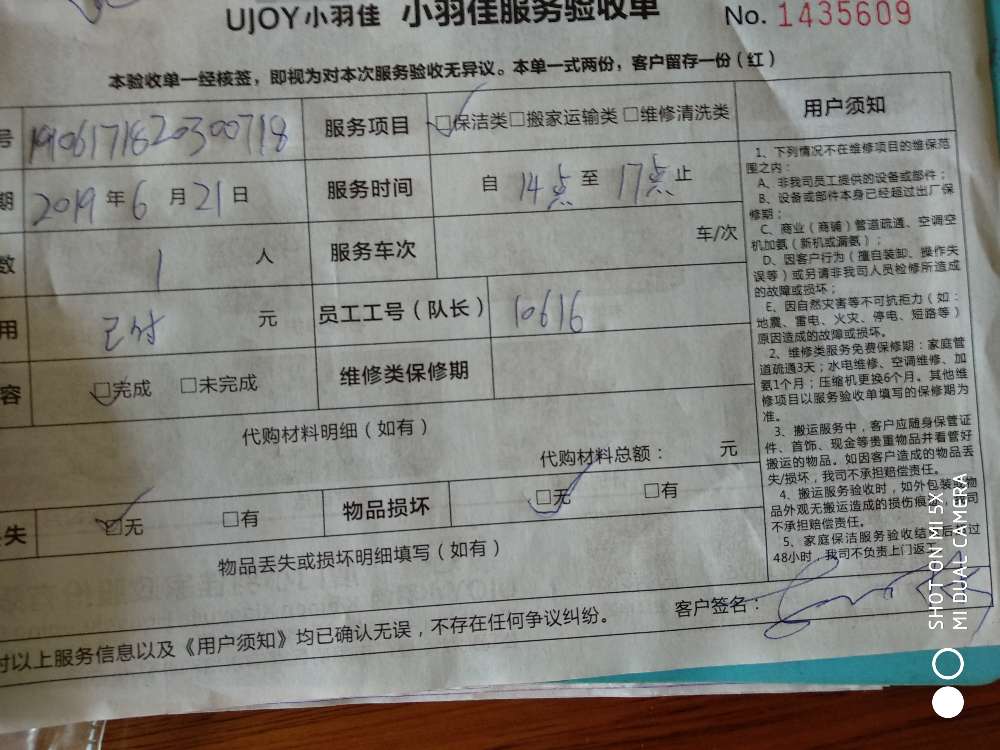 UJOY小羽佳 小羽佳服务验收单 No. 1435609
本验收单一经核签，即视为对本次服务验收无异议。本单一式两份，客户留存一份（红）
号 1906171820300718 服务项目 □保洁类□搬家运输类 □维修清洗类 用户须知
期 2019年6月21日 服务时间 自 14点 至 17点 止
数 1 人 服务车次 车/次
用 已付 元 员工工号（队长） 10616
容 □完成 □未完成 维修类保修期
代购材料明细（如有）
代购材料总额： 元
失 □无 □有 物品损坏 □无 □有
物品丢失或损坏明细填写（如有）
对以上服务信息以及《用户须知》均已确认无误，不存在任何争议纠纷。 客户签名：
1、下列情况不在维修项目的维保范
围之内：
A、非我司员工提供的设备或部件；
B、设备或部件本身已经超过出厂保
修期；
C、商业（商铺）管道疏通、空调空
机加氨（新机或漏氨）；
D、因客户行为（擅自装卸、操作失
误等）或另请非我司人员检修所造成
的故障或损坏；
E、因自然灾害等不可抗拒力（如：
地震、雷电、火灾、停电、短路等）
原因造成的故障或损坏。
2、维修类服务免费保修期：家庭管
道疏通3天；水电维修、空调维修、加
氨1个月；压缩机更换6个月。其他维
修项目以服务验收单填写的保修期为
准。
3、搬运服务中，客户应随身保管证
件、首饰、现金等贵重物品并看管好
搬运的物品。如因客户造成的物品丢
失/损坏，我司不承担赔偿责任。
4、搬运服务验收时，如外包装或物
品外观无搬运造成的损伤痕 司
不承担赔偿责任。
5、家庭保洁服务验收结 后 过
48小时，我司不负责上门返工
SHOT ON MI 5X
MI DUAL CAMERA